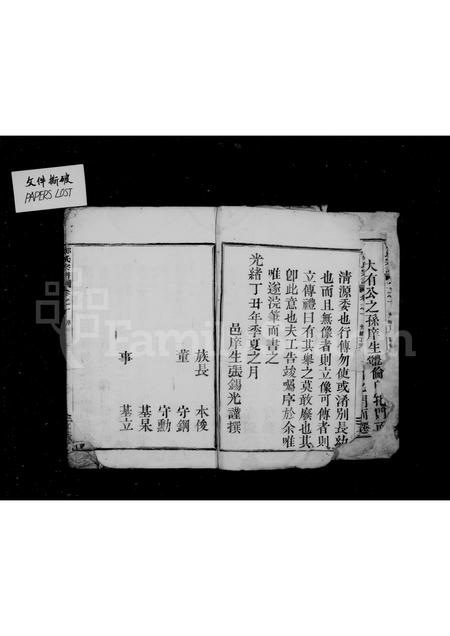 文件撕破
PAPERS LOST
大有公之孫庠生
清源委也行傳勿使或淆別長幼
也而且無像者則立像可傳者則
立傳禮曰有其舉之莫敢廢也其
卽此意也夫工告竣囑序於余唯
唯遂浣筆而書之
光緒丁丑年季夏之月
邑庠生張錫光謹撰
族長 木俊
董 守鋼
守勳
基杲
事 基立
FamilySearch